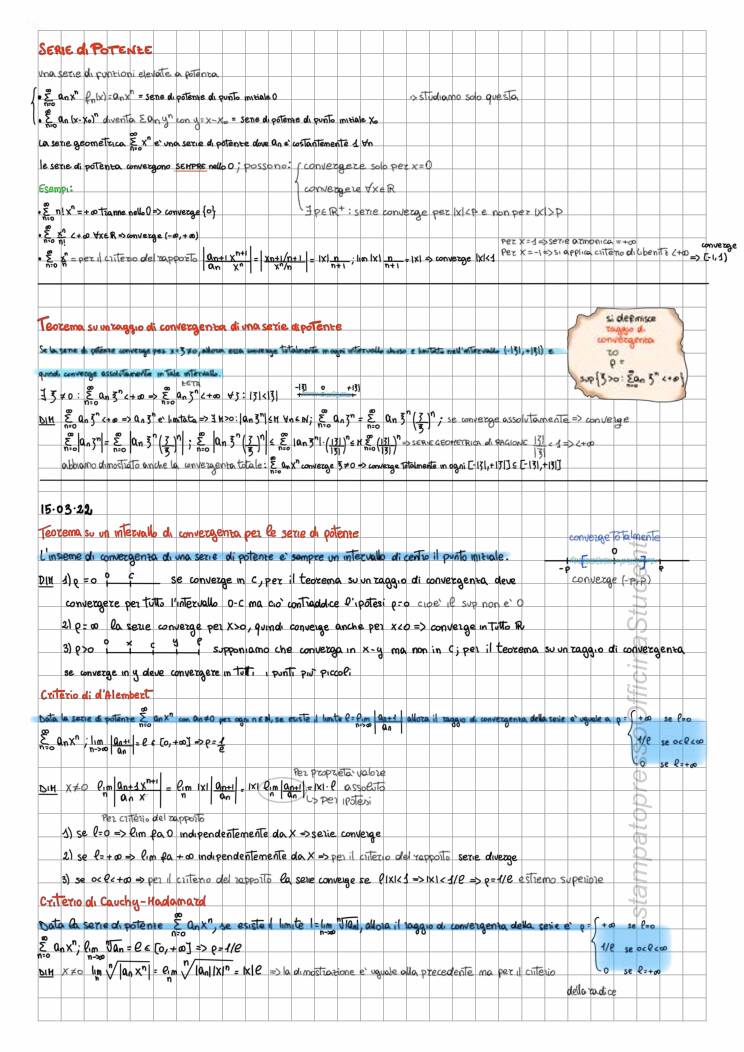 SERIE di POTENZE
una serie di funzioni elevate a potenza
• ∞∑n=0 anxⁿ fn(x)=anxⁿ = serie di potenze di punto iniziale 0 → studiamo solo questa
• ∞∑n=0 an(x-x₀)ⁿ diventa ∑anyⁿ con y=x-x₀ = serie di potenze di punto iniziale x₀
La serie geometrica ∞∑n=0 xⁿ e' una serie di potenze dove an e' costantemente 1 ∀n
le serie di potenza convergono SEMPRE nello 0; possono: { convergere solo per x=0
convergere ∀x∈R
∃ρ∈R⁺: serie converge per |x|<ρ e non per |x|>ρ
Esempi:
• ∞∑n=0 n!xⁿ=+∞ tranne nello 0 => converge {0}
• ∞∑n=0 xⁿ/n! <+∞ ∀x∈R => converge (-∞,+∞)
• ∞∑n=0 xⁿ/n = per il criterio del rapporto |an+1 xⁿ⁺¹/an xⁿ| = |xn+1/n+1 / xⁿ/n| = |x| n/n+1 ; lim |x| n/n+1 = |x| => converge |x|<1
Per x=1 => serie armonica = +∞
Per x=-1 => si applica criterio di Libeniz <+∞ => converge [-1,1)
Teorema su un raggio di convergenza di una serie di potenze
Se la serie di potenze converge per x=ξ≠0, allora essa converge totalmente in ogni intervallo chiuso e limitato nell'intervallo (-|ξ|,+|ξ|) e
quindi converge assolutamente in tale intervallo.
ZETA
∃ ξ≠0: ∞∑n=0 anξⁿ<+∞ => ∞∑n=0 anξⁿ<+∞ ∀ʒ: |ʒ|<|ξ| -|ξ| 0 +|ξ|
DIM ∞∑n=0 anξⁿ<+∞ => anξⁿ e' limitata => ∃M>0: |anξⁿ|≤M ∀n∈N; ∞∑n=0 anʒⁿ = ∞∑n=0 anξⁿ(ʒ/ξ)ⁿ; se converge assolutamente => converge
∞∑n=0 |anʒⁿ| = ∞∑n=0 |anξⁿ(ʒ/ξ)ⁿ| ; ∞∑n=0 |anξⁿ(ʒ/ξ)ⁿ| ≤ ∞∑n=0 |anξⁿ|·(|ʒ|/|ξ|)ⁿ ≤ M ∞∑n=0 (|ʒ|/|ξ|)ⁿ => SERIE GEOMETRICA di RAGIONE |ʒ|/|ξ| < 1 => <+∞
abbiamo dimostrato anche la convergenza totale: ∞∑n=0 anxⁿ converge ξ≠0 => converge totalmente in ogni [-|ʒ|,+|ʒ|] ⊆ [-|ξ|,+|ξ|]
si definisce
raggio di
convergenza
ρ =
sup{ξ>0: ∞∑n=0 anξⁿ<+∞}
15·03·22
Teorema su un intervallo di convergenza per le serie di potenze
L'insieme di convergenza di una serie di potenze e' sempre un intervallo di centro il punto iniziale.
converge totalmente
-ρ 0 ρ
converge (-ρ,ρ)
DIM 1) ρ=0 0 c se converge in c, per il teorema su un raggio di convergenza deve
convergere per tutto l'intervallo 0-c ma cio' contraddice l'ipotesi ρ=0 cioe' il sup non e' 0
2) ρ=∞ la serie converge per x>0, quindi converge anche per x<0 => converge in tutto R
3) ρ>0 0 x c y ρ supponiamo che converga in x-y ma non in c; per il teorema su un raggio di convergenza
se converge in y deve convergere in tutti i punti piu' piccoli
Criterio di d'Alembert
Data la serie di potenze ∞∑n=0 anxⁿ con an≠0 per ogni n∈N, se esiste il limite ℓ=lim n→∞ |an+1/an| allora il raggio di convergenza della serie e' uguale a ρ= { +∞ se ℓ=0
1/ℓ se 0<ℓ<∞
0 se ℓ=+∞
∞∑n=0 anxⁿ; lim n→∞ |an+1/an| = ℓ ∈ [0,+∞] => ρ=1/ℓ
DIM x≠0 lim n |an+1 xⁿ⁺¹/an x| = lim n |x| |an+1/an| = |x| lim n |an+1/an| = |x|·ℓ
Per proprieta' valore assoluto
↳ per ipotesi
Per criterio del rapporto
1) se ℓ=0 => lim fa 0 indipendentemente da x => serie converge
2) se ℓ=+∞ => lim fa +∞ indipendentemente da x => per il criterio del rapporto serie diverge
3) se 0<ℓ<+∞ => per il criterio del rapporto la serie converge se ℓ|x|<1 => |x|<1/ℓ => ρ=1/ℓ estremo superiore
Criterio di Cauchy-Hadamard
Data la serie di potenze ∞∑n=0 anxⁿ, se esiste il limite l=lim n→∞ ⁿ√|an|, allora il raggio di convergenza della serie e' ρ= { +∞ se ℓ=0
1/ℓ se 0<ℓ<∞
0 se ℓ=+∞
∞∑n=0 anxⁿ; lim n→∞ ⁿ√an = ℓ ∈ [0,+∞] => ρ=1/ℓ
DIM x≠0 lim n ⁿ√|anxⁿ| = lim n ⁿ√|an||x|ⁿ = |x|ℓ => la dimostrazione e' uguale alla precedente ma per il criterio
della radice
stampatopressoOfficinaStudenti